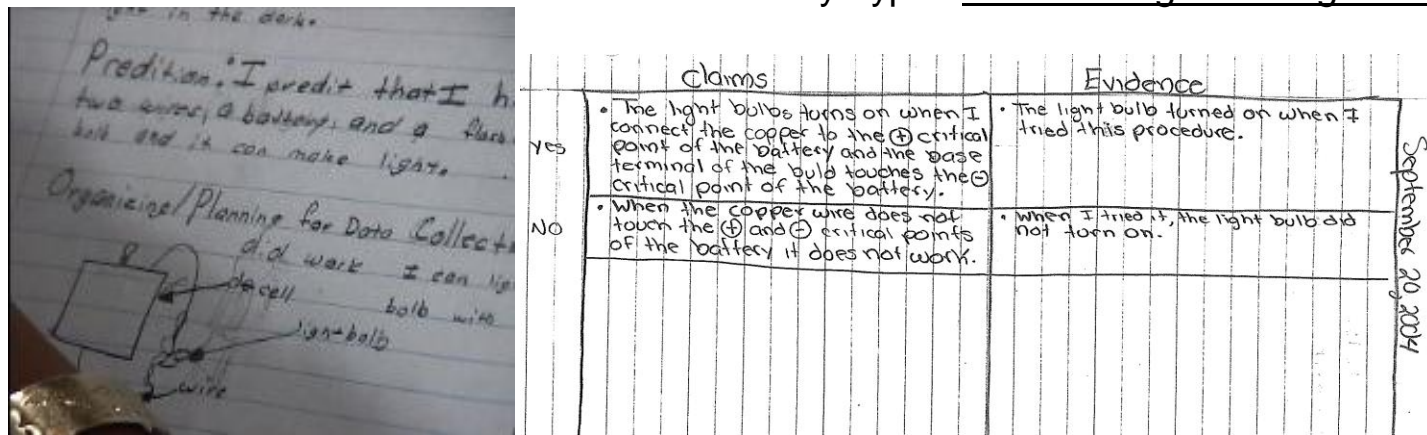 in the dark.
Predition: "I predit that I h
two wires, a battery, and a flash
bolb and it can make light.
Organicing/Planning for Data Collect
did work I can lig
d-cell
bolb with
lightbolb
wire
Claims
Evidence
yes
• The light bulbs turns on when I
connect the copper to the ⊕ critical
point of the battery and the base
terminal of the bulb touches the ⊖
critical point of the battery.
• The light bulb turned on when I
tried this procedure.
NO
• When the copper wire does not
touch the ⊕ and ⊖ critical points
of the battery it does not work.
• When I tried it, the light bulb did
not turn on.
September 20, 2004